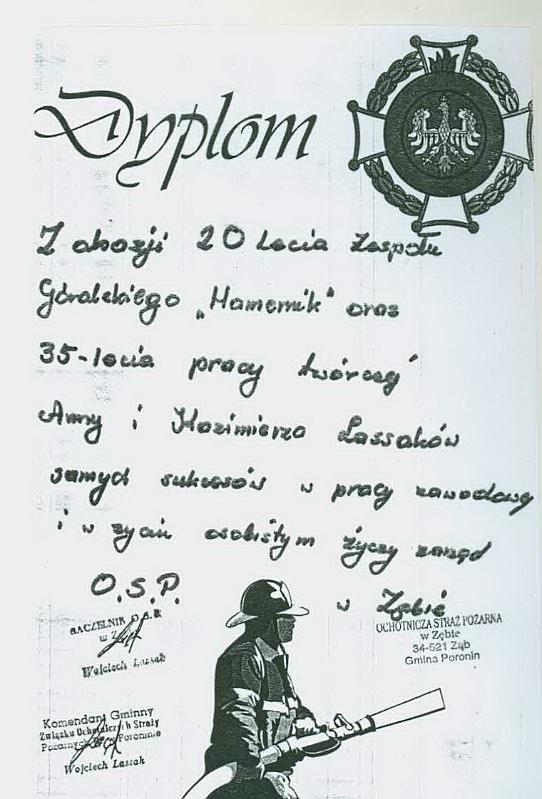 Dyplom
Z okazji 20 lecia Zespołu
Góralskiego „Hamernik" oraz
35-lecia pracy twórczej
Anny i Kazimierza Lassaków
samych sukcesów w pracy zawodowej
i w życiu osobistym życzy zarząd
O.S.P. w Zębie
NACZELNIK O.S.P.
w Zębie
Wojciech Lassak
OCHOTNICZA STRAŻ POŻARNA
w Zębie
34-521 Ząb
Gmina Poronin
Komendant Gminny
Związku Ochotniczych Straży
Pożarnych w Poroninie
Wojciech Lassak